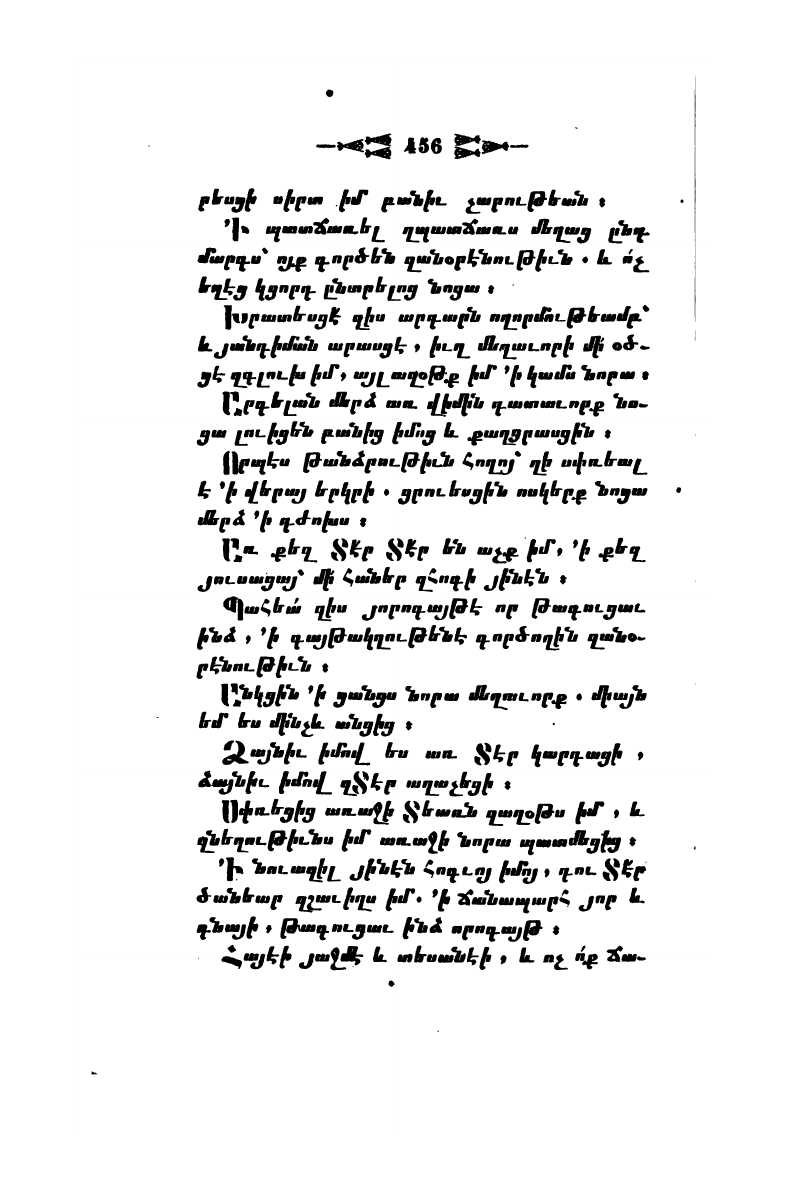 456
րեսցի սիրտ իմ բանիւ չարութեան ։
՚Ի պատճառել զպատճառս մեղաց ընդ
մարդս՝ ոյք գործեն զանօրէնութիւն . և ո՛չ
եղէց կցորդ ընտրելոց նոցա ։
Խրատեսցէ զիս արդարն ողորմութեամբ՝
և յանդիման արասցէ , իւղ մեղաւորի մի օծ-
ցէ զգլուխ իմ , այլ աղօթք իմ ՚ի կամս նորա ։
Ընկլան մերձ առ վիմին դատաւորք նո-
ցա լուիցեն բանից իմոց և քաղցրասցին ։
Որպէս թանձրութիւն հողոյ՝ զի սփռեալ
է ՚ի վերայ երկրի . ցրուեսցին ոսկերք նոցա
մերձ ՚ի դժոխս ։
Առ քեզ Տէր Տէր են աչք իմ , ՚ի քեզ
յուսացայ՝ մի հաներ զհոգի յինէն ։
Պահեա՛ զիս յորոգայթէ որ թագուցաւ
ինձ , ՚ի գայթակղութենէ գործողին զանօ-
րէնութիւն ։
Անկցին ՚ի ցանցս նորա մեղաւորք . միայն
եմ ես մինչև անցից ։
Ձայնիւ իմով ես առ Տէր կարդացի ,
ձայնիւ իմով զՏէր աղաչեցի ։
Սփռեցից առաջի Տեառն զաղօթս իմ , և
զնեղութիւնս իմ առաջի նորա պատմեցից ։
՚Ի նուազիլ յինէն հոգւոյ իմոյ , դու Տէր
ծանեար զշաւիղս իմ . ՚ի ճանապարհ յոր և
գնայի , թագուցաւ ինձ որոգայթ ։
Հայէի յաջմէ և տեսանէի , և ոչ ո՛ք ճա-